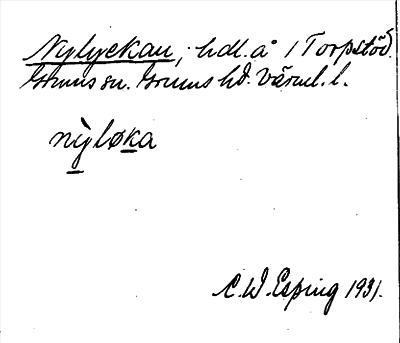 Nylyckan, hdl. å 1 Torpstöd.
Grums sn. Grums hd. Värml. l.
nỳløka
C. W. Esping 1931.